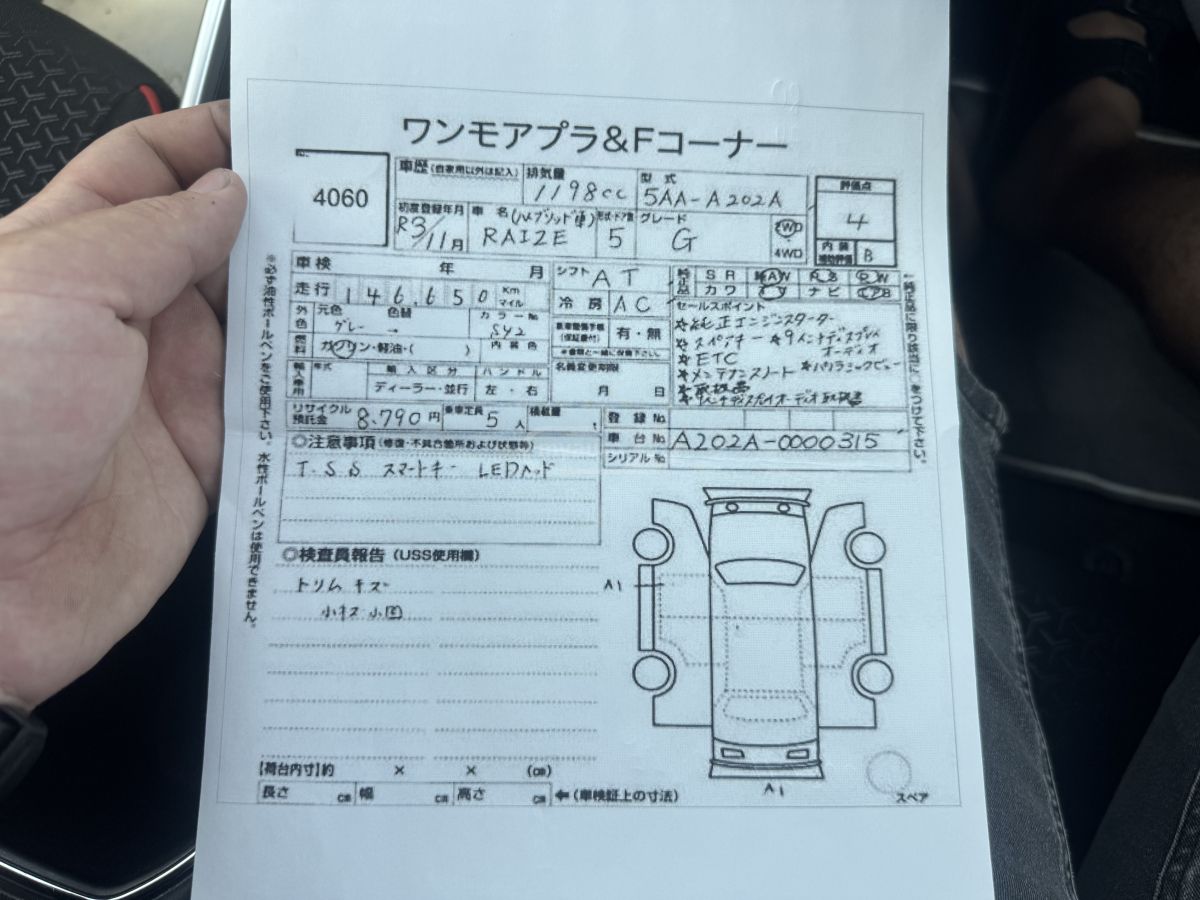 ワンモアプラ&Fコーナー
4060
車歴 (自家用以外は記入)
排気量
1198cc
型式
5AA-A202A
評価点
4
内装
B
初度登録年月
R3/11月
車名 (ハイブリッド車)
RAIZE
形状・ドア数
5
グレード
G
2WD
4WD
車検 年 月
シフト AT
純正品
SR AW PS PW
カワ ナビ
走行 146,650 Km マイル
冷房 AC
セールスポイント
外色 元色 色替 カラーNo
グレー → S42
有・無
*純正エンジンスターター
*スペアキー *9インチディスプレイ
オーディオ
*ETC
*メンテナンスノート *パノラミックビュー
*取扱書
燃料 ガソリン・軽油・( ) 内装色
名義変更期限
月 日
輸入車用 年式 輸入区分 ハンドル
ディーラー・並行 左・右
リサイクル預託金 8.790円 乗車定員 5人 積載量 t
登録No
車台No A202A-0000315
シリアルNo
◎注意事項 (修復・不具合箇所および状態等)
T.S.S スマートキー LEDヘッド
◎検査員報告 (USS使用欄)
トリムキズ
小キズ小凹
A1
A1
スペア
【荷台内寸】約 × × (㎝)
長さ ㎝ 幅 ㎝ 高さ ㎝ ←(車検証上の寸法)
※必ず油性ボールペンをご使用下さい。水性ボールペンは使用できません。